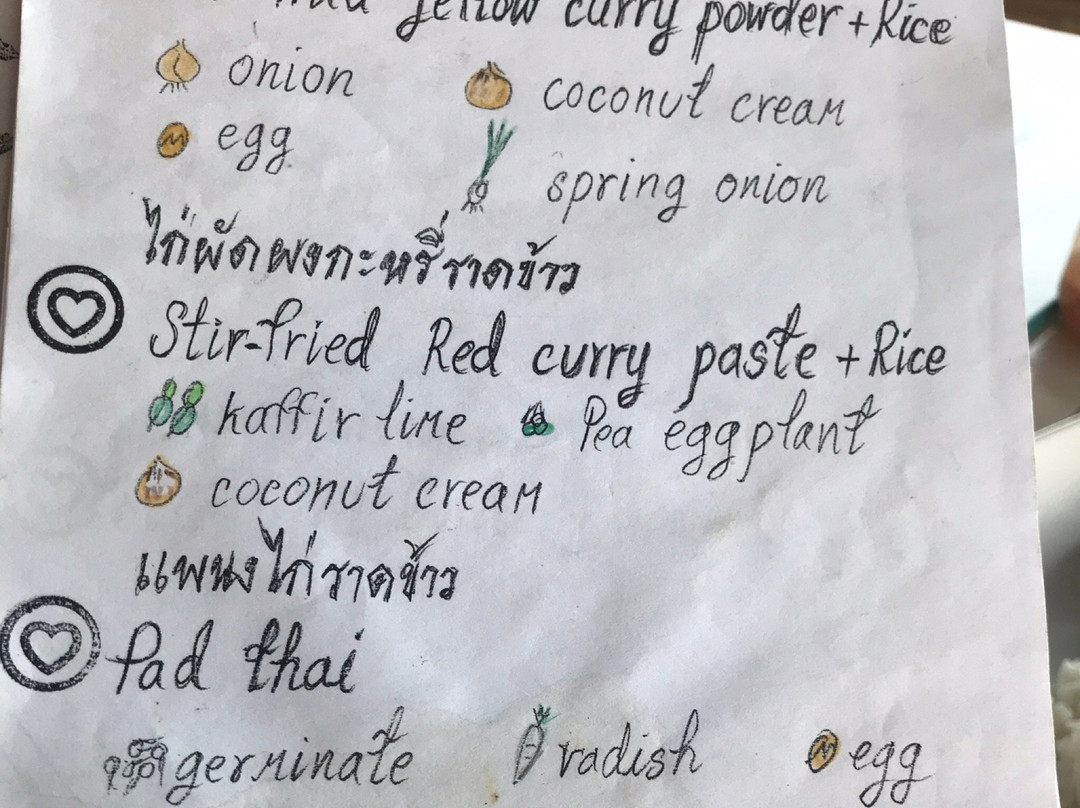 yellow curry powder + Rice
onion coconut cream
egg spring onion
ไก่ผัดผงกะหรี่ราดข้าว
Stir-fried Red curry paste + Rice
kaffir lime Pea eggplant
coconut cream
แพนงไก่ราดข้าว
Pad thai
germinate radish egg